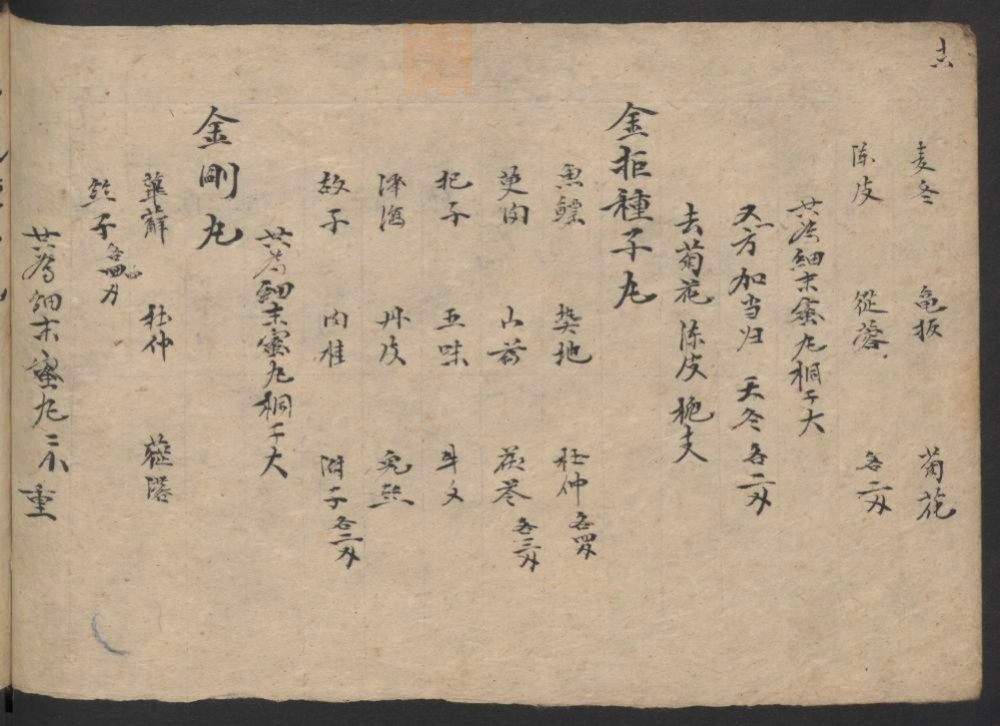 十六
麦冬 龟板 菊花
陈皮 從蓉 各二刄
共為細末蜜丸桐子大
又方加当归 天冬 各二刄
去菊花 陈皮
金拒種子丸
魚鰾 熟地 杜仲 各四刄
萸肉 山药 茯苓 各三刄
杞子 五味 牛夕
泽泻 丹皮 兎丝
故子 肉桂 附子 各二刄
共為細末蜜丸桐子大
金剛丸
萆薢 杜仲 蓯蓉
兎子 各四刄
共為細末蜜丸 重